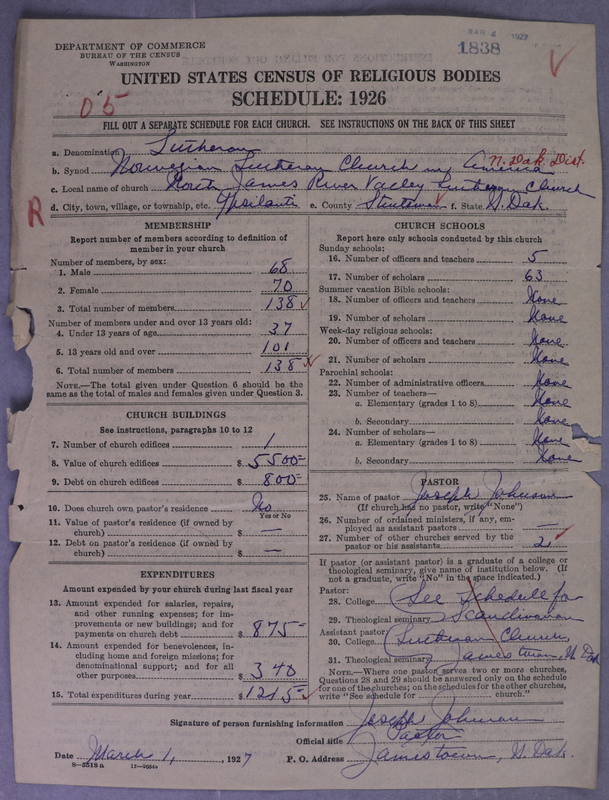 MAR 4 1927
1838
DEPARTMENT OF COMMERCE
BUREAU OF THE CENSUS
WASHINGTON
UNITED STATES CENSUS OF RELIGIOUS BODIES
SCHEDULE: 1926
05
FILL OUT A SEPARATE SCHEDULE FOR EACH CHURCH. SEE INSTRUCTIONS ON THE BACK OF THIS SHEET
a. Denomination Lutheran
b. Synod Norwegian Lutheran Church in America N. Dak. Dist.
c. Local name of church North James River Valley Lutheran Church
R
d. City, town, village, or township, etc. Ypsilanti e. County Stutsman f. State N. Dak.
MEMBERSHIP
Report number of members according to definition of
member in your church
Number of members, by sex:
1. Male 68
2. Female 70
3. Total number of members 138
Number of members under and over 13 years old:
4. Under 13 years of age 37
5. 13 years old and over 101
6. Total number of members 138
NOTE.—The total given under Question 6 should be the
same as the total of males and females given under Question 3.
CHURCH BUILDINGS
See instructions, paragraphs 10 to 12
7. Number of church edifices 1
8. Value of church edifices $ 5500=
9. Debt on church edifices $ 800=
10. Does church own pastor's residence? No
Yes or No
11. Value of pastor's residence (if owned by
church) $ —
12. Debt on pastor's residence (if owned by
church) $ —
EXPENDITURES
Amount expended by your church during last fiscal year
13. Amount expended for salaries, repairs,
and other running expenses; for im-
provements or new buildings; and for
payments on church debt $ 875=
14. Amount expended for benevolences, in-
cluding home and foreign missions; for
denominational support; and for all
other purposes $ 340
15. Total expenditures during year $ 1215=
CHURCH SCHOOLS
Report here only schools conducted by this church
Sunday schools:
16. Number of officers and teachers 5
17. Number of scholars 63
Summer vacation Bible schools:
18. Number of officers and teachers None
19. Number of scholars None
Week-day religious schools:
20. Number of officers and teachers None
21. Number of scholars None
Parochial schools:
22. Number of administrative officers None
23. Number of teachers—
a. Elementary (grades 1 to 8) None
b. Secondary None
24. Number of scholars—
a. Elementary (grades 1 to 8) None
b. Secondary None
PASTOR
25. Name of pastor Joseph Johnson
(If church has no pastor, write "None")
26. Number of ordained ministers, if any, em-
ployed as assistant pastors —
27. Number of other churches served by the
pastor or his assistants 2
If pastor (or assistant pastor) is a graduate of a college or
theological seminary, give name of institution below. (If
not a graduate, write "No" in the space indicated.)
Pastor:
28. College See Schedule for
29. Theological seminary Scandinavian
Assistant pastor:
30. College Lutheran Church,
31. Theological seminary Jamestown, N. Dak
NOTE.—Where one pastor serves two or more churches,
Questions 28 and 29 should be answered only on the schedule
for one of the churches; on the schedules for the other churches,
write "See schedule for church."
Signature of person furnishing information Joseph Johnson
Official title Pastor
Date March 1, 1927 P. O. Address Jamestown, N. Dak.